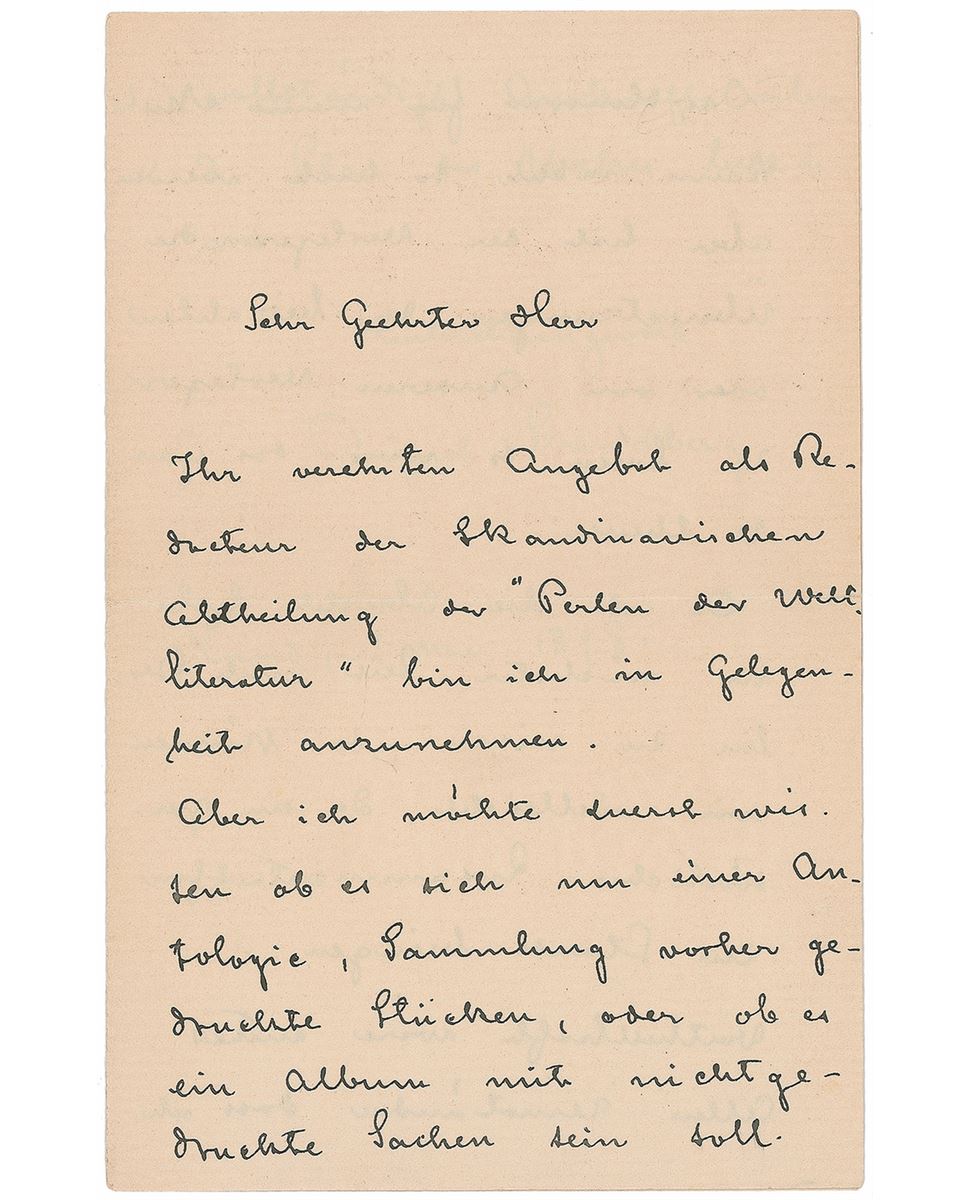 Sehr Geehrter Herr
Ihr verehrten Angebot als Re-
dacteur der Skandinavischen
Abtheilung der "Perlen der Welt-
literatur" bin ich in Gelegen-
heit anzunehmen.
Aber ich möchte zuerst wis-
sen ob es sich um einer An-
tologie, Sammlung vorher ge-
druckte Stücken, oder ob es
ein Album, mit nicht ge-
druckte Sachen sein soll.